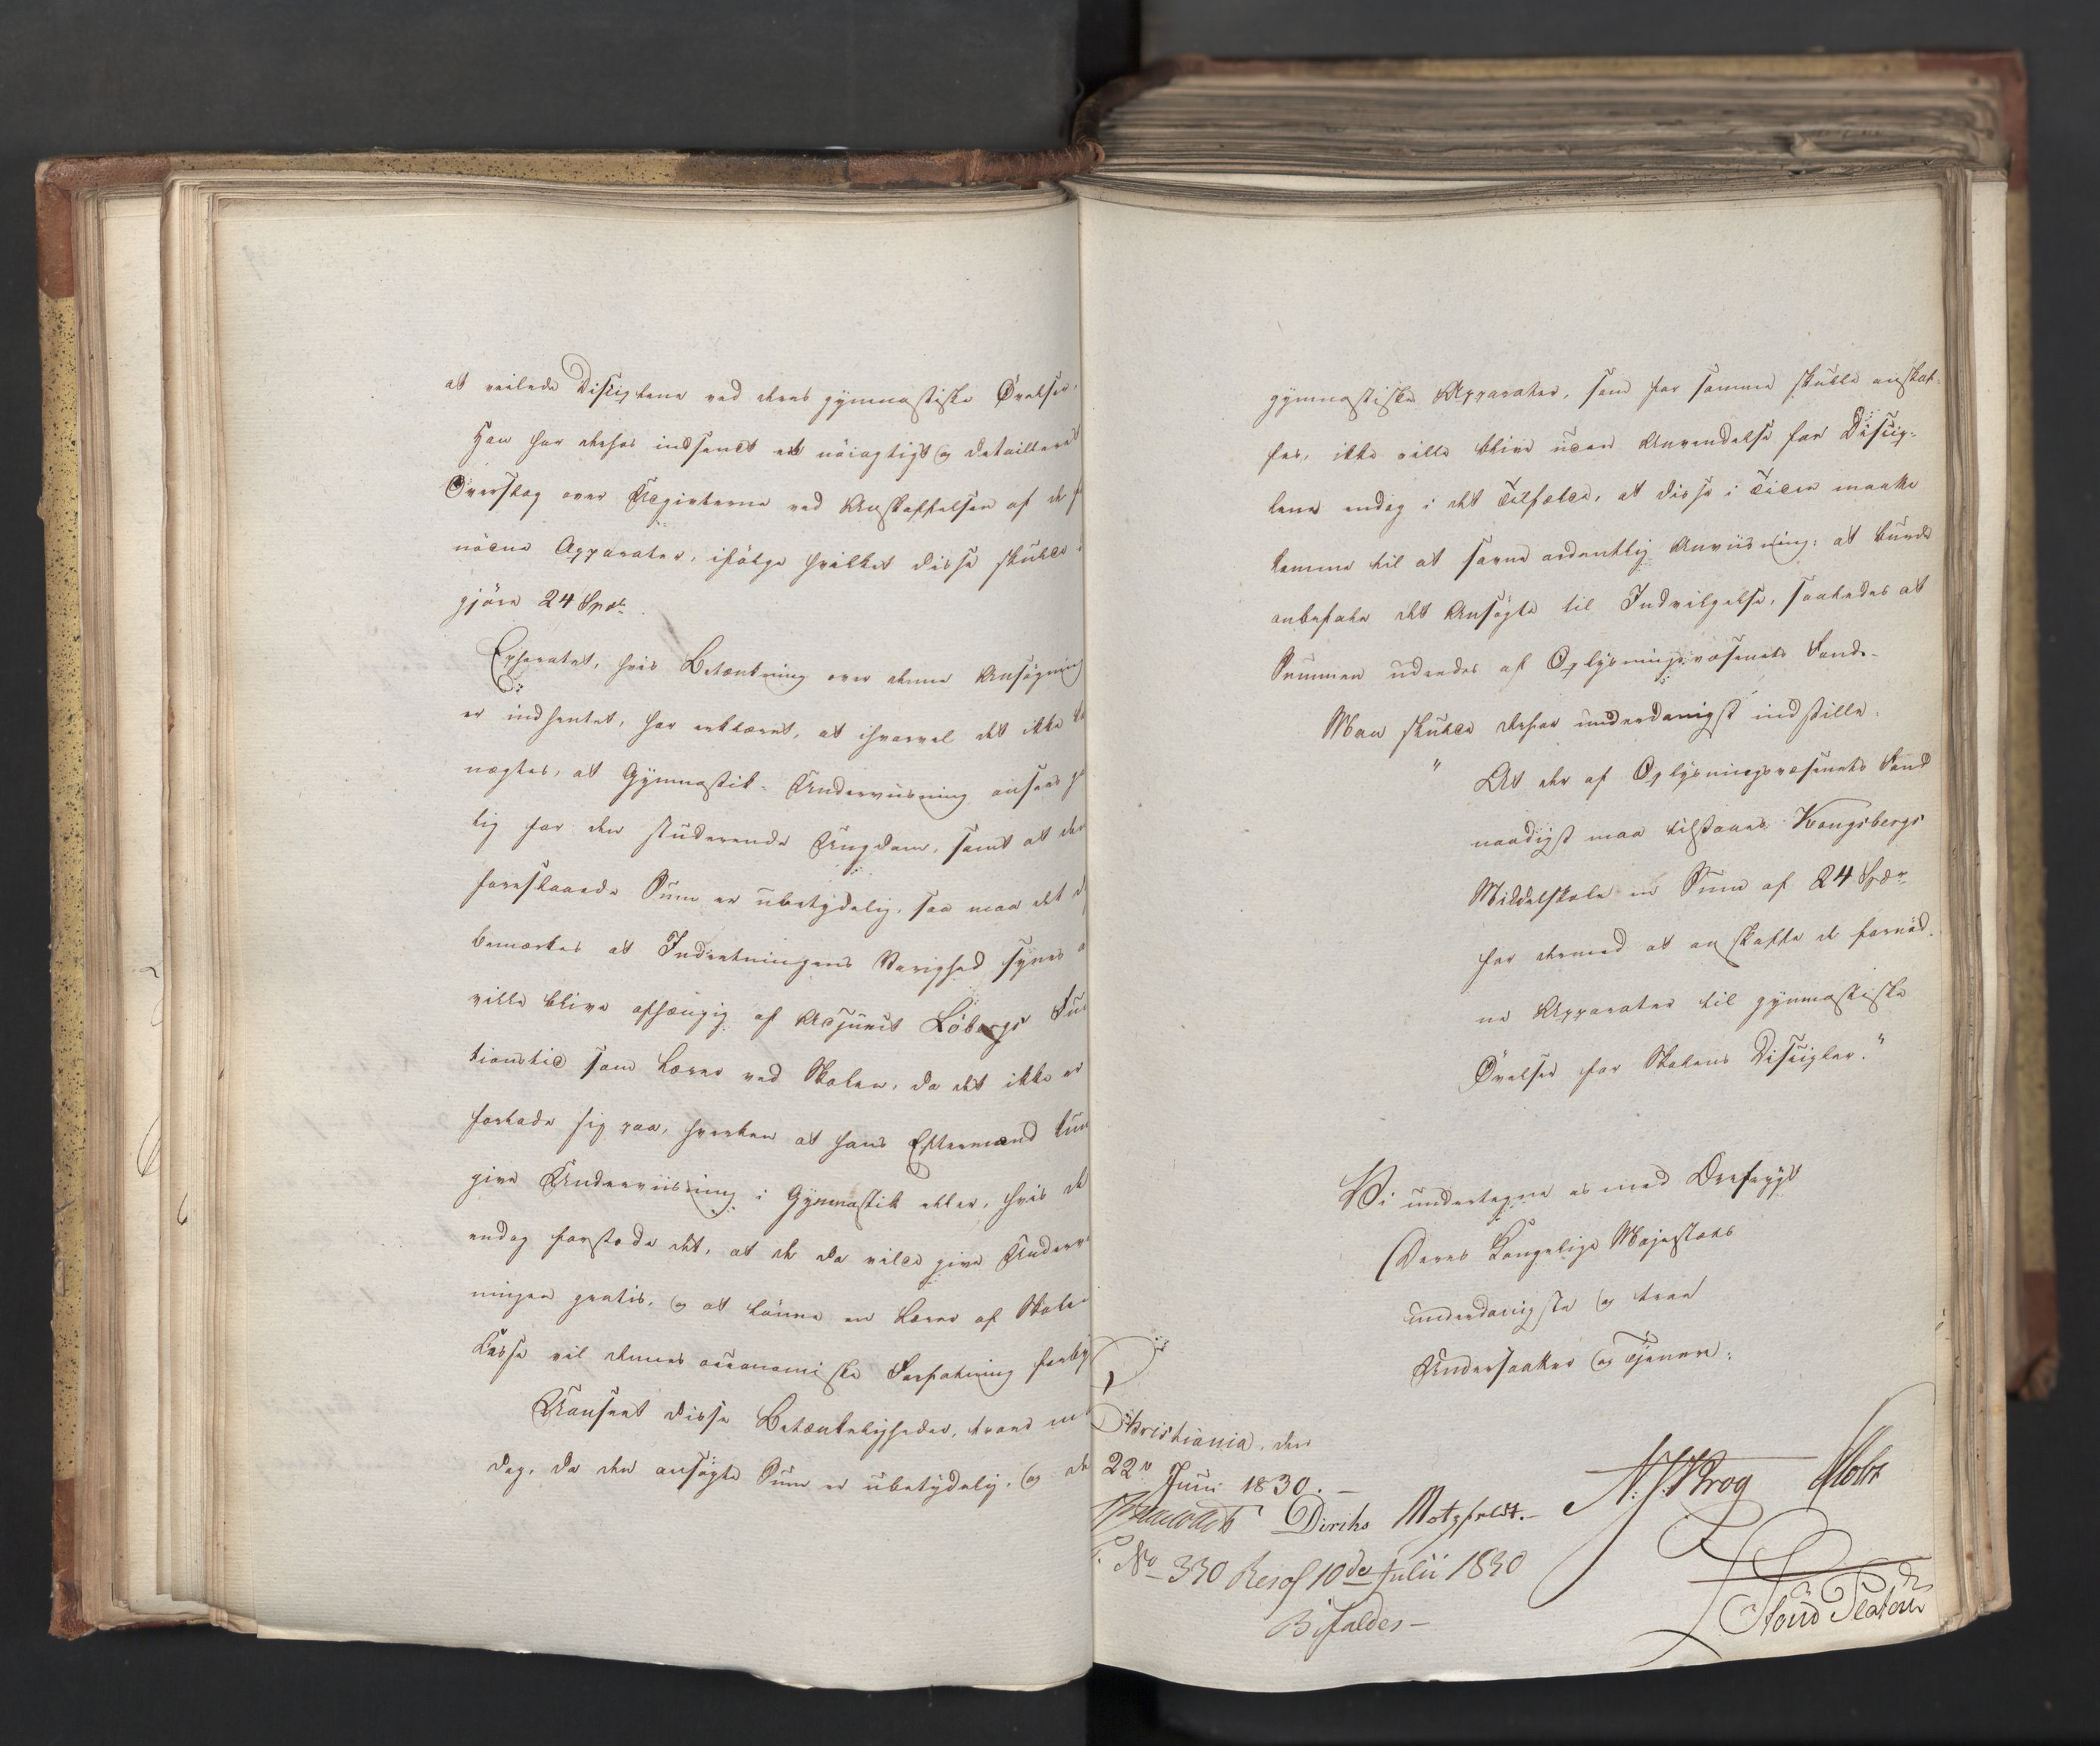 at veilede Disciplene ved deres gymnastiske Øvelser.
Han har derhos indsendt et nöiagtigt og detailleret
Overslag over Udgivterne ved Anskaffelsen af de f
nödne Apparater, ifölge hvilket disse skulde
gjöre 24 Spd
Ephoratet, hvis Betænkning over denne Ansögning
er indhentet, har erklæret, at ihvorvel det ikke
nægtes, at Gymnastik-Underviisning ansees g
lig for den studerende Ungdom, samt at den
foreslaaede Sum er ubetydelig, saa maa det d
bemærkes at Indretningens Varighed synes a
ville blive afhængig af Adjunct Löbergs Fun
tionstid som Lærer ved Skolen, da det ikke er
forlade sig paa, hverken at hans Eftermænd kun
give Underviisning i Gymnastik eller, hvis de
endog forstode det, at de da vilde give Underv
ningen gratis, og at lönne en Lærer af Skole
Kasse vil dennes oeconomiske Forfatning forby
Uanseet disse Betænkeligheder, troer m
dog, da den ansögte Sum er ubetydelig, og de
gymnastiske Apparater, som for samme skulle anskaf-
fes, ikke ville blive uden Anvendelse for Discip-
lene endog i det Tilfælde, at disse i Tiden maatte
komme til at savne ordentlig Anviisning: at burde
anbefale det Ansögte til Indvilgelse, saaledes at
Summen udredes af Oplysningsvæsenets Fond.
Man skulde derfor underdanigst indstille:
" At der af Oplysningsvæsenets Fond
naadigst maa tilstaaes Kongsbergs
Middelskole en Sum af 24 Spdr
for dermed at anskaffe de fornöd-
ne Apparater til gymnastiske
Övelser for Skolens Discipler."
Vi undertegne os med Ærefrygt
Deres Kongelige Majestæts
underdanigste og troe
Undersaatter og Tjenere:
Christiania, den
22de Juni 1830.
Diriks Motzfeldt. N. J. Krog Holst
No 330 Resol 10de Julii 1830
Bifaldes